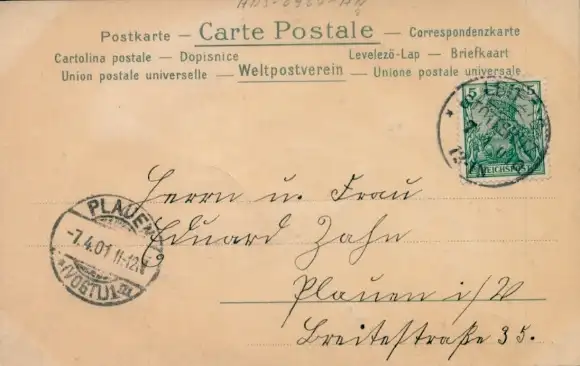 Postkarte — Carte Postale — Correspondenzkarte
Cartolina postale — Dopisnice Levelező-Lap — Briefkaart
Union postale universelle — Weltpostverein — Unione postale universale
5 5
REICHSPOST
Herrn u. Frau
Eduard Zahn
Plauen i/V
Breitestraße 35.
PLAUEN
-7.4.01 11-12.V
*(VOGTL)1